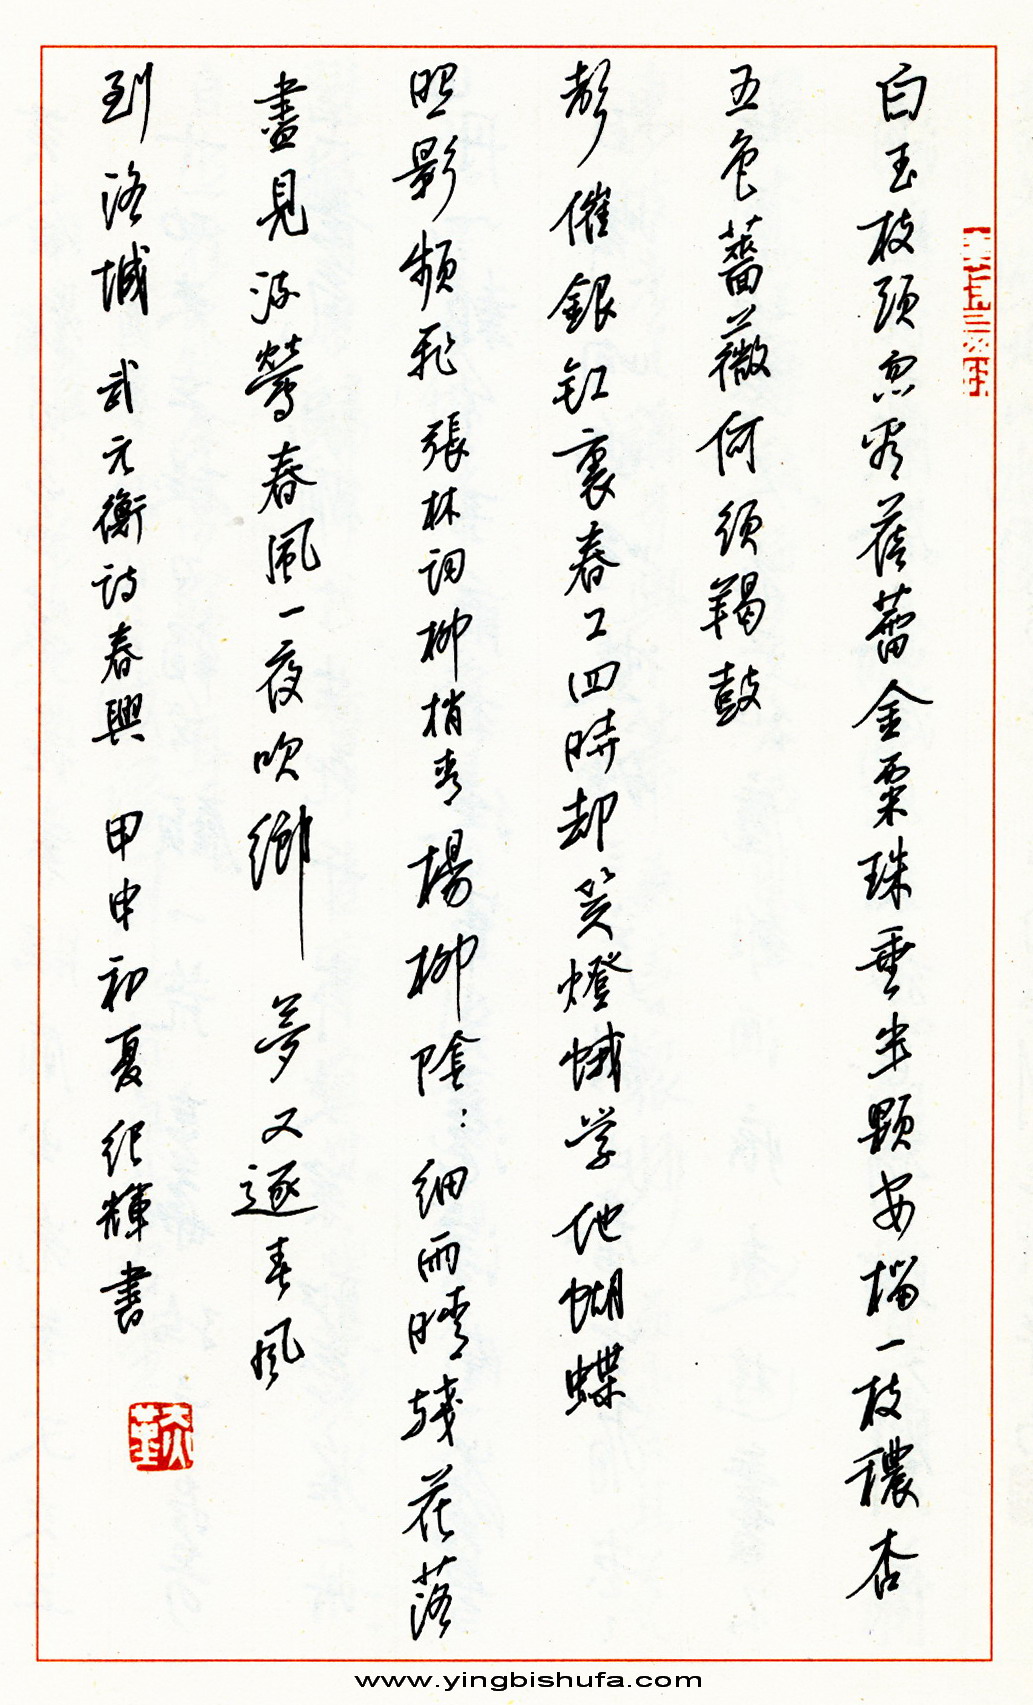 白玉枝頭忽看蓓蕾金粟珠垂半顆安榴一枝穠杏
五色薔薇何須羯鼓
聲催銀缸裏春工四時却笑燈蛾学地蝴蝶
照影頻飛 張林詞柳梢青 楊柳陰：細雨晴殘花落
盡見流鶯春風一夜吹鄉 夢又逐春風
到洛城 武元衡詩春興 甲申初夏紀輝書
www.yingbishufa.com